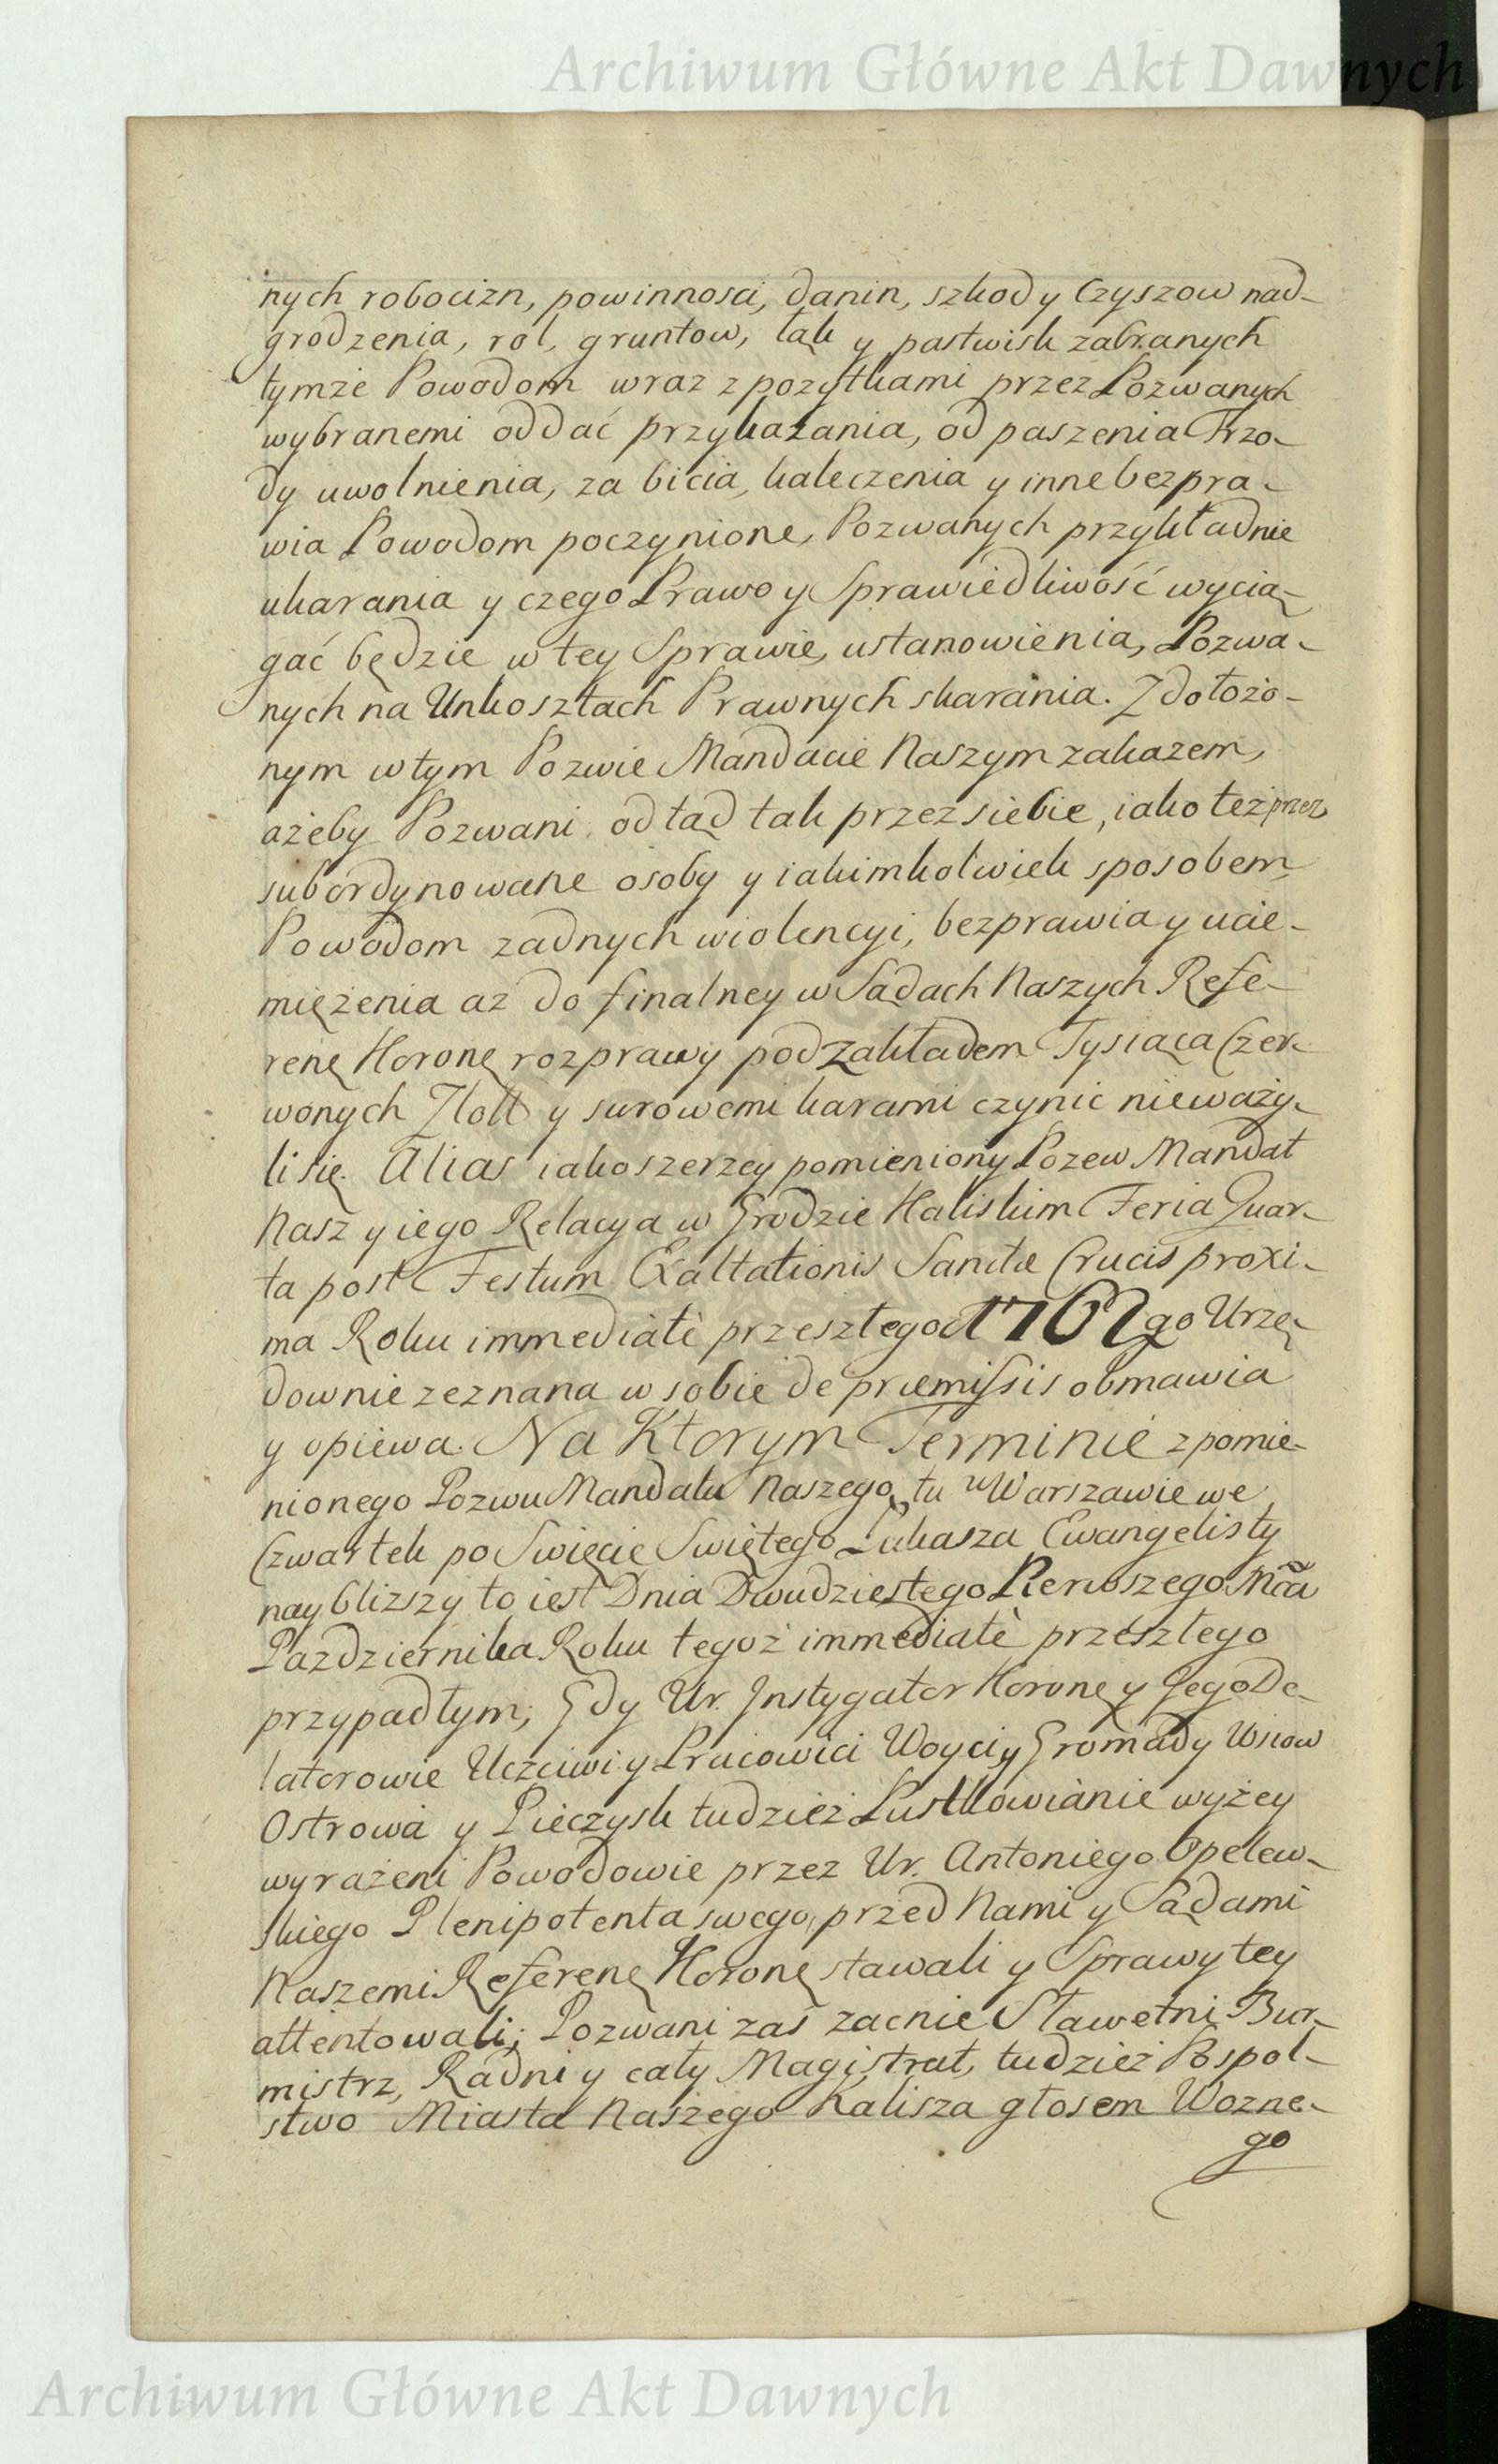 Archiwum Główne Akt Dawnych
nych robocizn, powinnosci, danin, szkody Czyszow nad-
grodzenia, rol, gruntow, łąk y pastwisk zabranych
tymże Powodom wraz z pozytkami przez Pozwanych
wybranemi oddać przykazania, od paszenia Trzo-
dy uwolnienia, za bicia, kaleczenia y inne bezpra-
wia Powodom poczynione, Pozwanych przykładnie
ukarania y czego Prawo y Sprawiedliwość wycią-
gać będzie w tey Sprawie, ustanowienia, Pozwa-
nych na Unkosztach Prawnych skarania. Z dołożo-
nym w tym Pozwie Mandacie Naszym zakazem,
ażeby Pozwani odtąd tak przez siebie, iako też przez
subordynowane osoby y iakimkolwiek sposobem
Powodom zadnych wiolencyi, bezprawia y ucie-
miężenia aż do finalney w Sądach Naszych Refe-
ren Koron rozprawy pod Zakładem Tysiąca Czer-
wonych Złott y surowemi karami czynic nieważy-
li się. Alias iako szerzey pomieniony Pozew Mandat
Nasz y iego Relacya w Grodzie Kaliskim Feria Quar-
ta post Festum Exaltationis Sanctæ Crucis proxi-
ma Roku immediatè przeszłego 1767go Urzę-
downie zeznana w sobie de præmissis obmawia
y opiewa. Na Ktorym Terminie z pomie-
nionego Pozwu Mandatu Naszego tu w Warszawie we
Czwartek po Swięcie Swiętego Łukasza Ewangelisty
nayblizszy to iest Dnia Dwudziestego Pierwszego Mca
Pazdziernika Roku tegoż immediatè przeszłego
przypadłym; Gdy Ur. Instygator Koron y Jego De-
latorowie Uczciwi y Pracowici Woyci y Gromady Wsiow
Ostrowa y Pieczysk tudzież Pustkowianie wyżey
wyrażeni Powodowie przez Ur. Antoniego Opelew-
skiego Plenipotenta swego, przed Nami y Sądami
Naszemi Referen Koron stawali y Sprawy tey
attentowali; Pozwani zaś zacnie Sławetni Bur-
mistrz, Radni y cały Magistrat, tudzież Pospol-
stwo Miasta Naszego Kalisza głosem Wozne-
go
Archiwum Główne Akt Dawnych